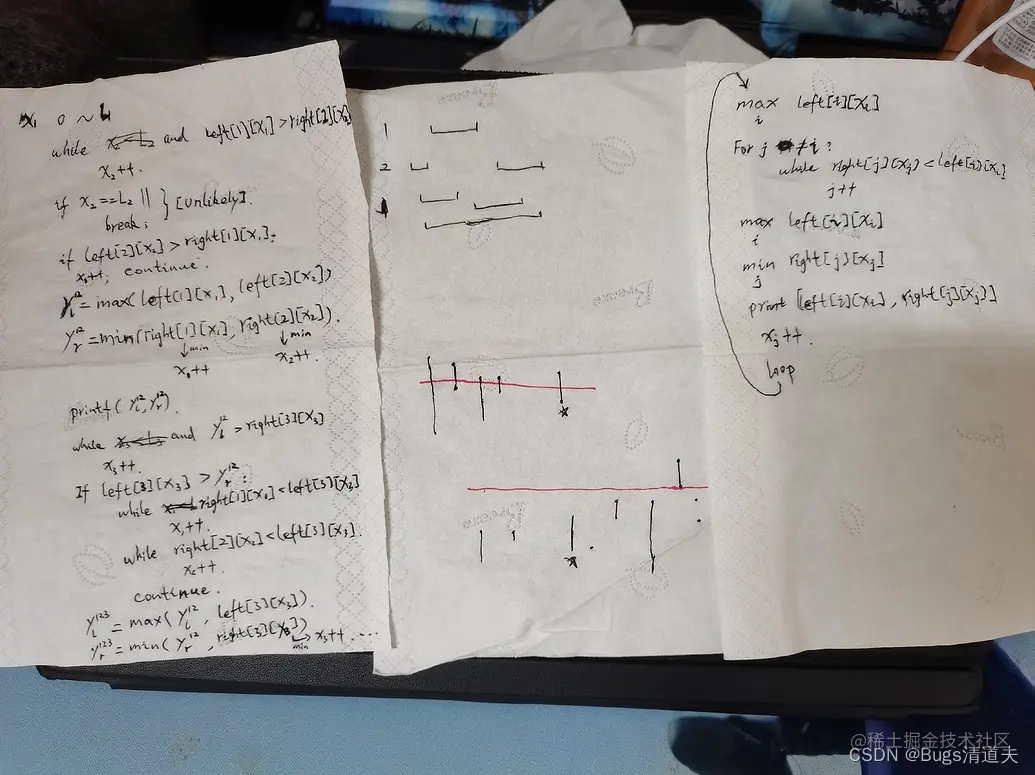 x₁ 0 ~ L₁
while x₂<L₂ and left[1][x₁] > right[2][x₂]
x₂++.
if x₂ == L₂ || } [unlikely].
break;
if left[2][x₂] > right[1][x₁]:
x₁++; continue.
yₗ¹² = max(left[1][x₁], left[2][x₂])
yᵣ¹² = min(right[1][x₁], right[2][x₂]).
↓min ↓min
x₁++ x₂++.
printf(yₗ¹², yᵣ¹²).
while x₃<L₃ and yₗ¹² > right[3][x₃]
x₃++.
If left[3][x₃] > yᵣ¹²:
while right[1][x₁] < left[3][x₃]
x₁++.
while right[2][x₂] < left[3][x₃].
x₂++.
continue.
yₗ¹²³ = max(yₗ¹², left[3][x₃]).
yᵣ¹²³ = min(yᵣ¹², right[3][x₃])
min → x₃++ ....
1
2
Breeze
Breeze
Breeze
Breeze
max left[i][xᵢ]
i
For j ≠ i:
while right[j][xⱼ] < left[i][xᵢ]
j++
max left[i][xᵢ]
i
min right[j][xⱼ]
j
print [left[i][xᵢ], right[j][xⱼ]]
xⱼ++.
loop
@稀土掘金技术社区
CSDN @Bugs清道夫